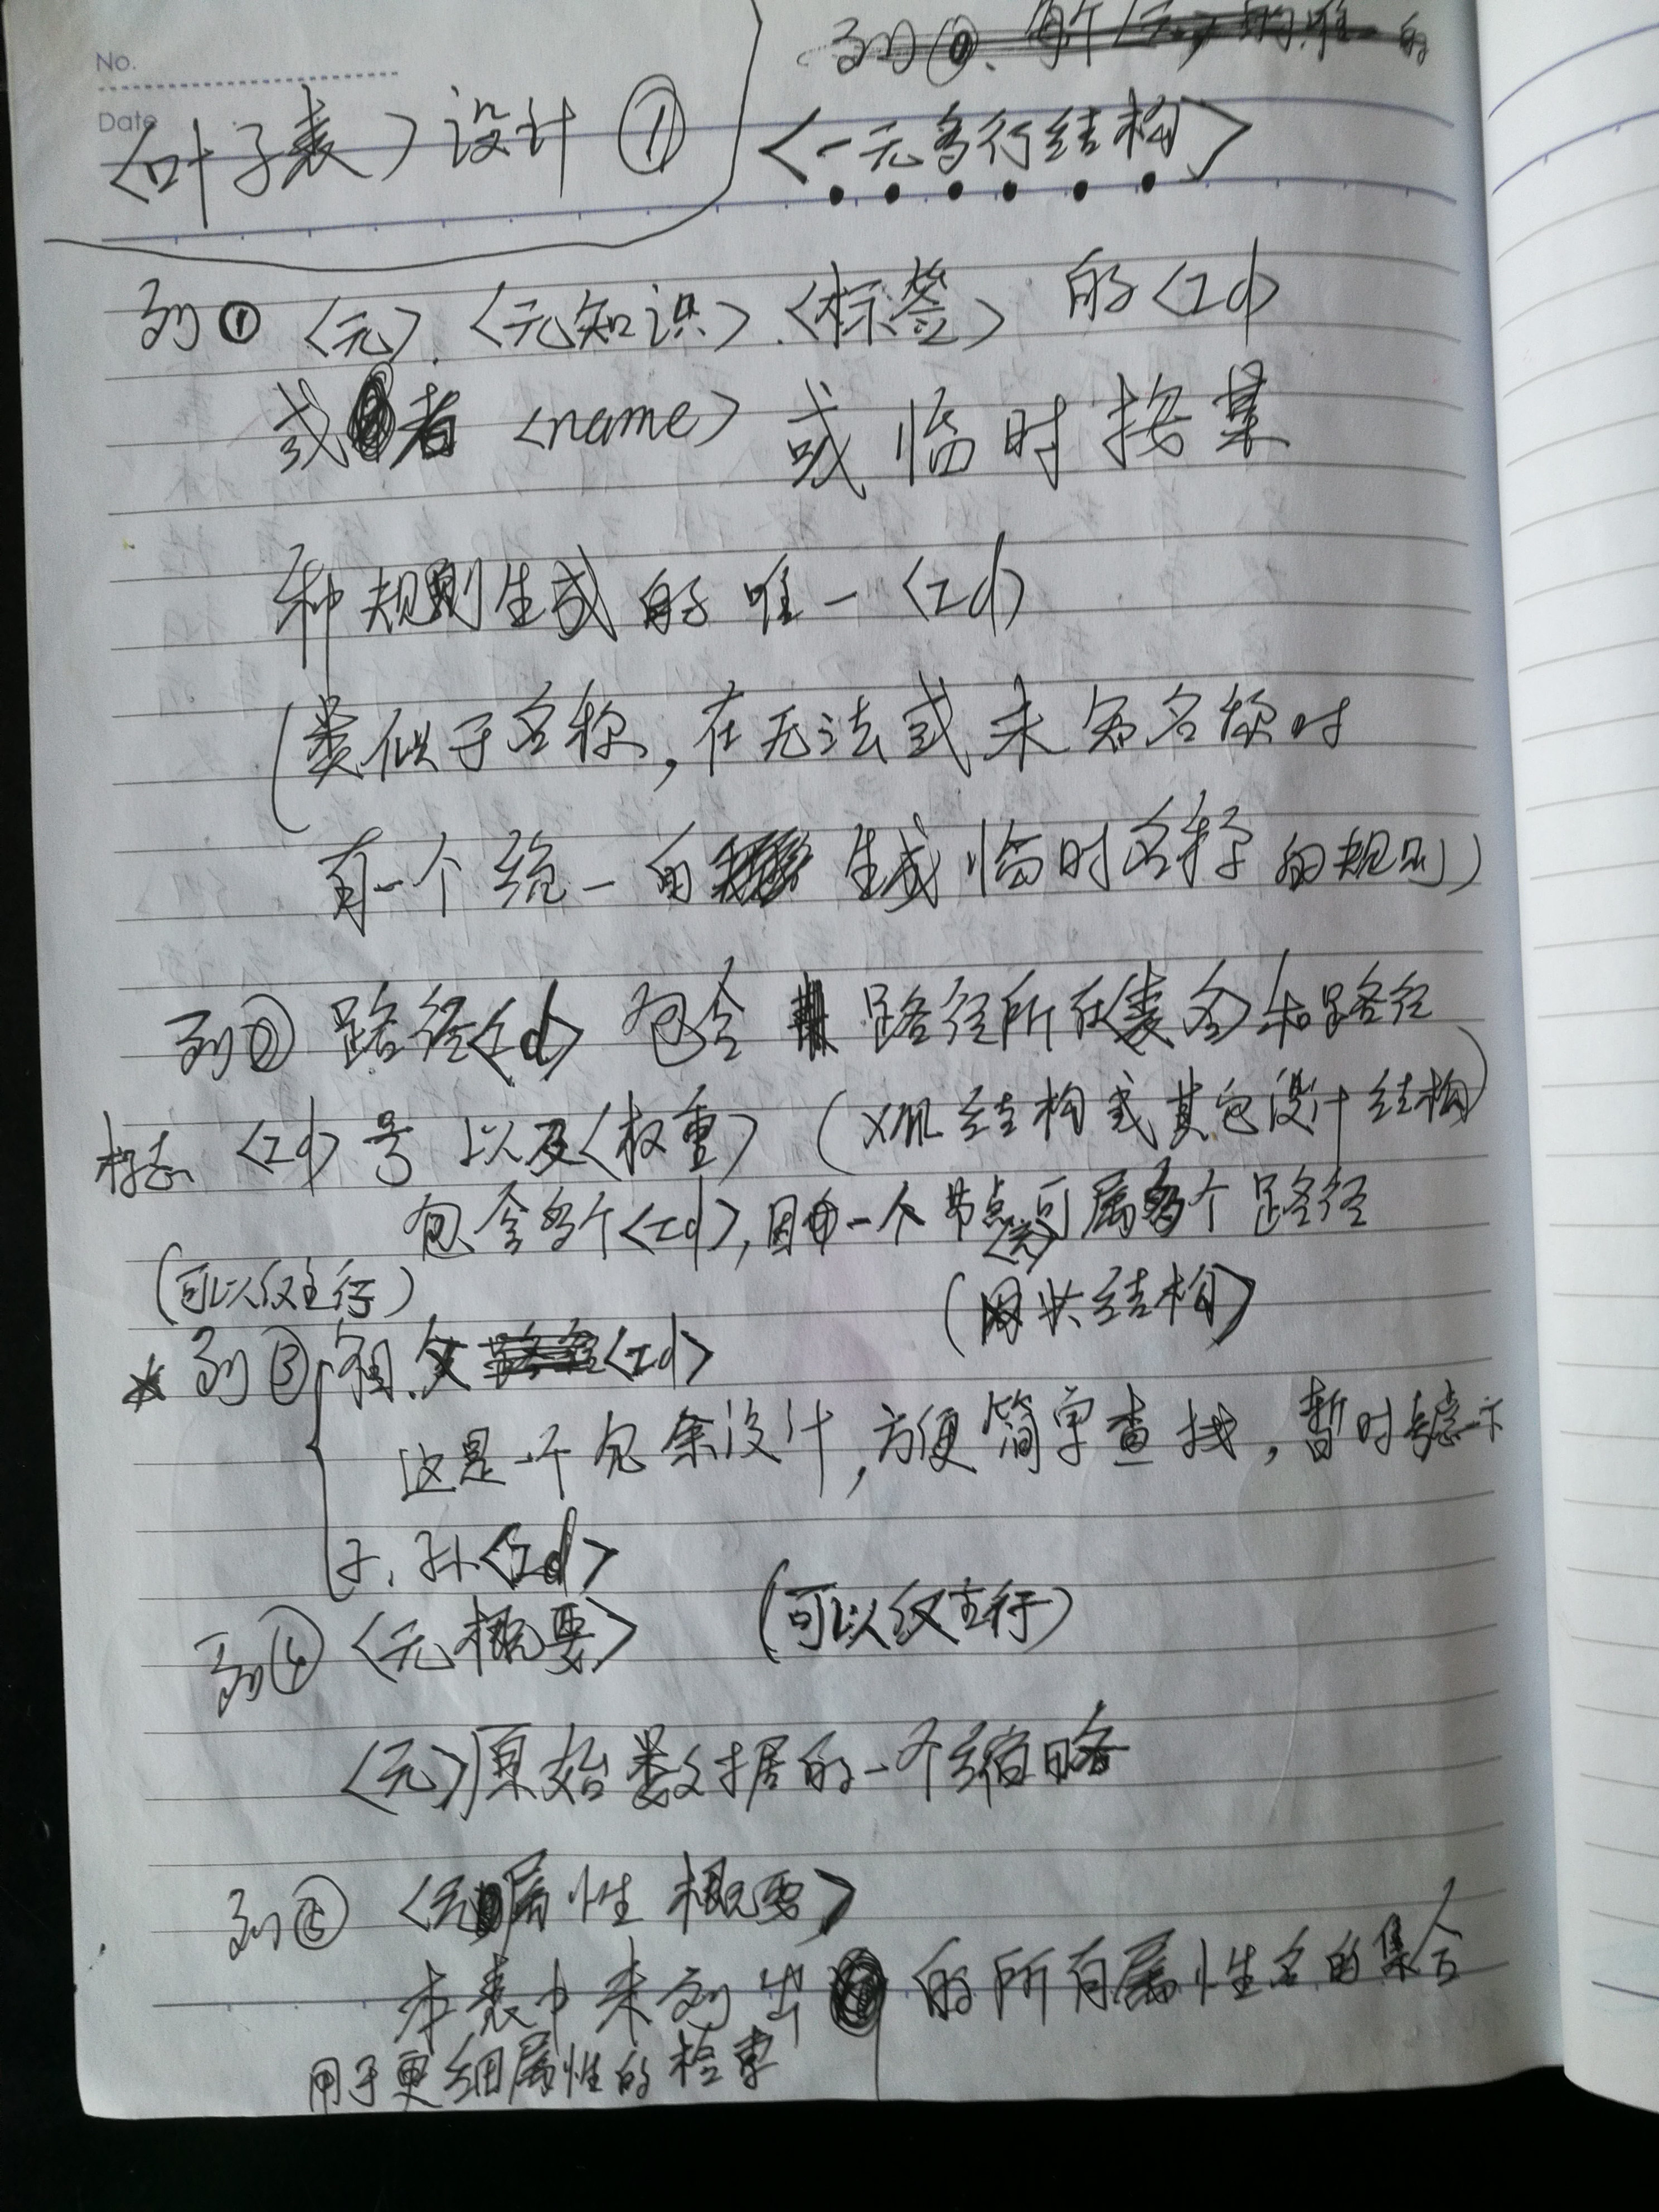 No.
Date
<叶子表>设计 ①
<一元多行结构>
列① <元>.<元知识>.<标签> 的<Id>
或者 <name> 或临时按某
种规则生成的唯一<Id>
(类似于名称,在无法或未命名称时
有一个统一的生成临时名称的规则)
列② 路径<Id> 包含路径所在<表名>和路径
标志 <Id>号 以及<权重> (XML结构或其它设计结构)
包含多个<Id>,因一个节点<元>可属多个路径
(可以仅主行)
(网状结构)
列③ 祖.父<Id>
这是一个冗余设计,方便简单查找,暂时考虑一下
子.孙<Id>
列④ <元概要> (可以仅主行)
<元>原始数据的一个缩略
列⑤ <元属性概要>
本表中未列出的所有属性名的集合
用于更细属性的检索